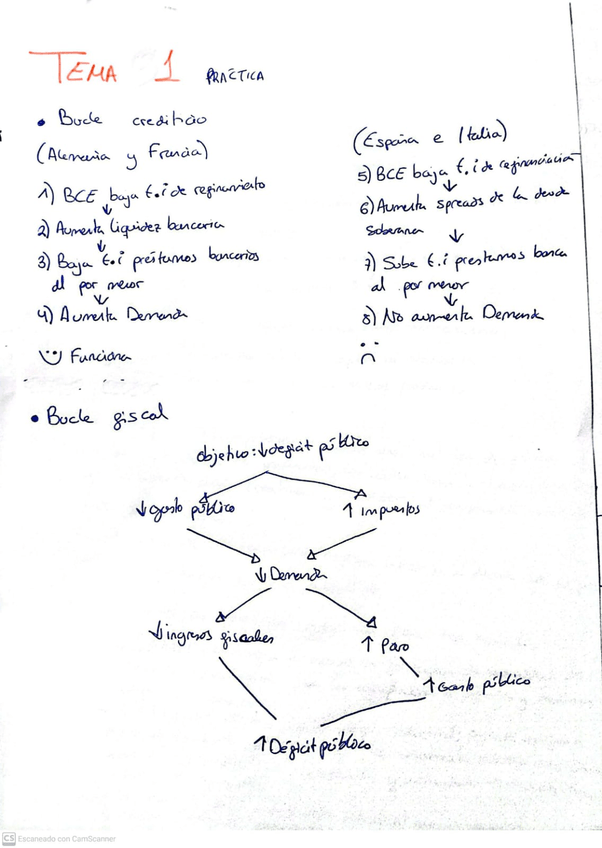 TEMA 1 PRÁCTICA
• Bucle crediticio
(Alemania y Francia)
1) BCE baja t.i de refinamiento
2) Aumenta liquidez bancaria
3) Baja t.i préstamos bancarios
al por menor
4) Aumenta Demanda
Funciona
(España e Italia)
5) BCE baja t.i de refinanciación
6) Aumenta spreads de la deuda
soberana
7) Sube t.i prestamos banca
al por menor
8) No aumenta Demanda
• Bucle fiscal
objetivo: ↓ deficit público
↓ gasto público
↑ impuestos
↓ Demanda
↓ ingresos fiscales
↑ Paro
↑ Gasto público
↑ Déficit público
CS Escaneado con CamScanner